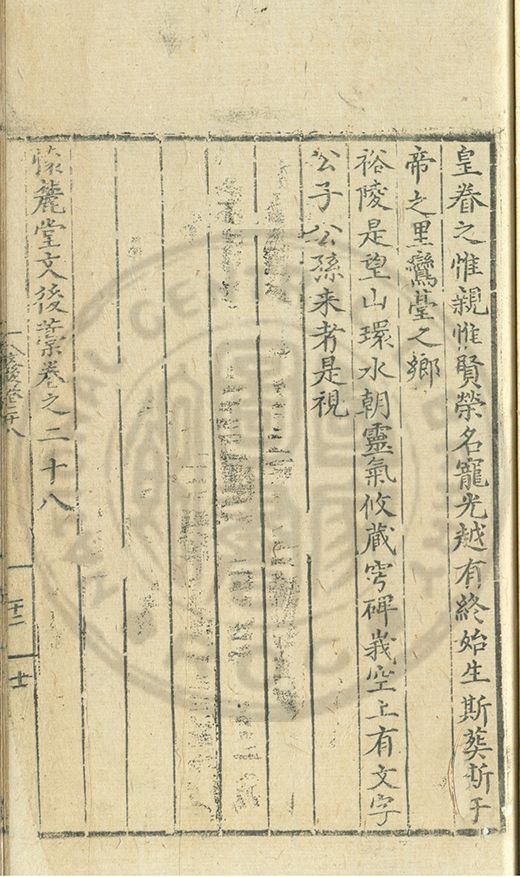 皇眷之惟親惟賢榮名寵光越有終始生斯葬斯于
帝之里鸞臺之鄉
裕陵是望山環水朝靈氣攸藏穹碑峩空上有文字
公子公孫来者是視
懐麓堂文後藁卷之二十八